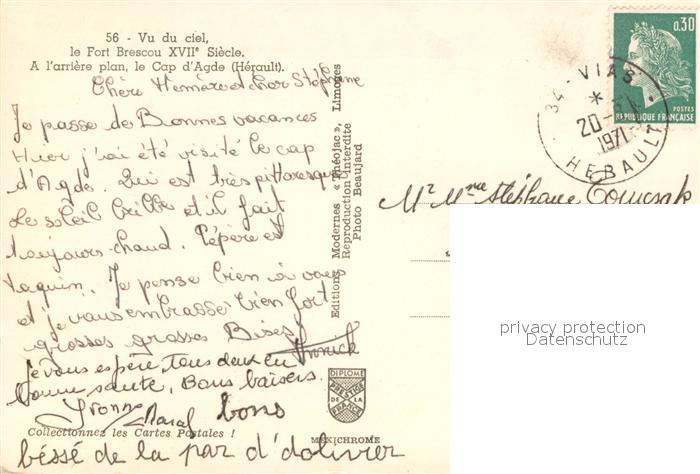 56 - Vu du ciel,
le Fort Brescou XVIIe Siècle.
A l'arrière plan, le Cap d'Agde (Hérault).
Chère Mémère et cher Stéphane
Je passe de Bonnes vacances
Hier j'ai été visité le cap
d'Agde. Qui est très pittoresque
Le soleil brille et il fait
toujours chaud. Pépère est
taquin. Je pense bien à vous
et je vous embrasse bien fort
grosses grosses Bises
je vous espère tous deux en
bonne santé. Bons baisers.
Yvonne bons
Collectionnez les Cartes Postales !
béssé de la par d'dolivier
Editions Modernes « Théojac », Limoges
Reproduction Interdite
Photo Beaujard
DIPLOME
PRESTIGE
DE LA
FRANCE
MEXICHROME
0,30
REPUBLIQUE FRANÇAISE
POSTES
34 - VIAS
20-
1971
HERAULT
Mr Mme Stéphane
privacy protection
Datenschutz